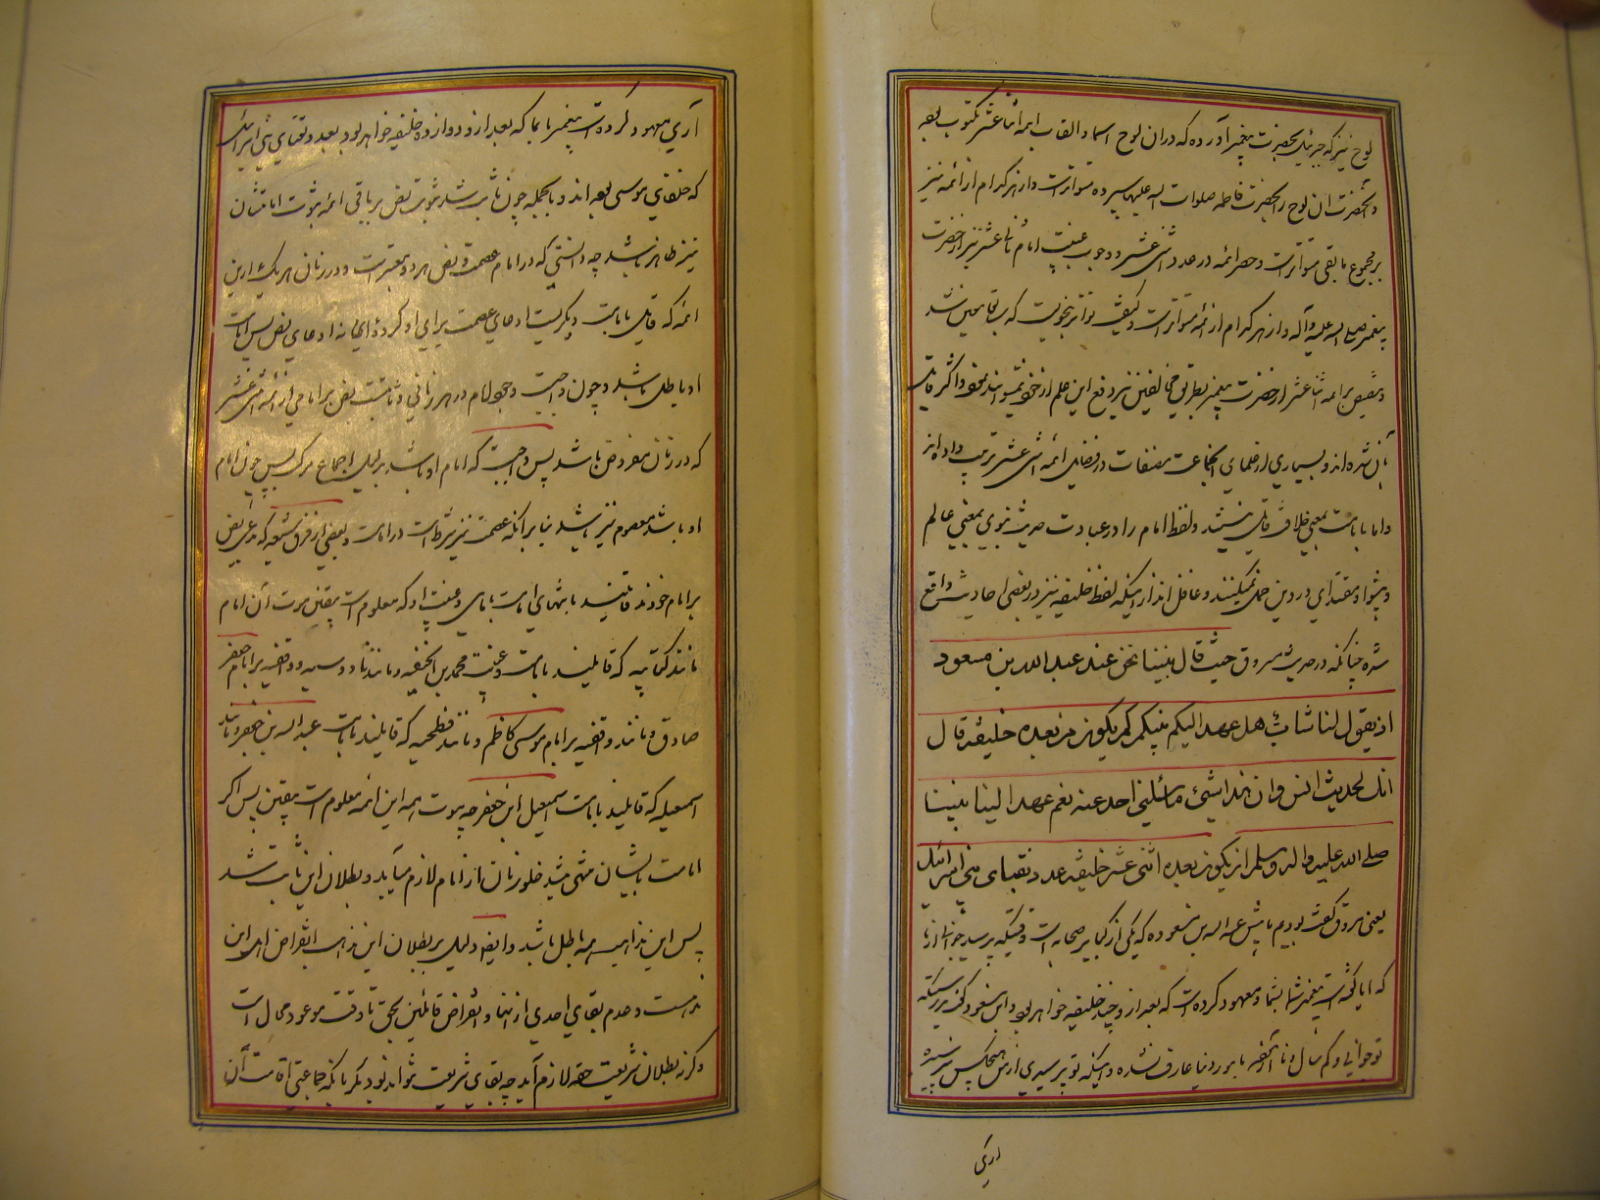 لوح نیز که جبرئیل بحضرت پیغمبر آورده که دران لوح اسما و القاب ایمه اثنا عشر مکتوب بوده
و آنحضرت ان لوح را بحضرت فاطمه صلوات الله علیها سپرده متواترست و از هر کدام از ائمه نیز
بر مجموع ما بقی متواترست و حصر ائمه در عدد اثنی عشر و وجوب غیبت امام ثانی عشر نیز از حضرت
پیغمبر صلی الله علیه و آله و از هر کدام از ائمه متواترست و کیفیت تواتر بنحویست که
بر ائمه اثنا عشر از حضرت پیغمبر بطریق مخالفین نیز دفع این علم از خود نمیتوانند نمود و اکثر قائل
بآن شده اند و بسیاری از علمای انجماعت مصنفات در فضایل ائمه اثنی عشر ترتیب داده اند
و اما بامامت بمعنی خلافت قائل نیستند و لفظ امام را در عبارت حدیث نبوی بمعنی عالم
و پیشوا و مقتدای در دین حمل میکنند و غافل اند از اینکه لفظ خلیفه نیز در بعضی احادیث واقع
شده چنانکه در حدیث مسروق حیث قال بینا نحن عند عبد الله بن مسعود
اذ یقول لنا شاب هل عهد الیکم نبیکم کم یکون من بعده خلیفة قال
انک لحدیث السن وان هذا شیئ ما سئلنی احد عنه نعم عهد الینا نبینا
صلی الله علیه واله وسلم ان یکون بعده اثنی عشر خلیفة عدد نقباء بنی اسرائیل
یعنی مسروق گفت بودیم ما پیش عبد الله بن مسعود که یکی از کبایر صحابه است وقتیکه پرسید جوانی از ما
که ایا گفته است پیغمبر شما بشما و معهود کرده است که بعد از و چند خلیفه خواهد بود ابن مسعود گفت بدرستیکه
تو جوانی و کم سال و بامور دنیا عارف نشده و اینکه تو پرسیدی از من هیچکس نپرسیده
اری
آری معهود کرده است پیغمبر ما بما که بعد از و دوازده خلیفه خواهد بود بعدد نقبای بنی اسرائیل
که خلفای موسی بوده اند و بالجمله چون ثابت شد ثبوت نص بر باقی ائمه ثبوت امامتشان
نیز ظاهر باشد چه دانستی که در امام عصمت و نص هر دو معتبرست و در زمان هر یک ازین
ائمه که قائل بامامت دیگریست ادعای عصمت برای او نکرده ایمانه ادعای نص پس امامت
او باطل باشد و چون واجبست وجود امام در هر زمانی و ثابتست نص بر امامی از ائمه اثنی عشر
که در زمان مفروض باشد پس واجبست که امام او باشد بدلیل اجماع مرکب پس چون امام
او باشد معصوم نیز باشد بنا بر آنکه عصمت نیز شرط است در امامت و بعضی از فرق شیعه که مدعی نص
بر امام خودند قائلند بانتهای امامت بامامی و غیبت او که معلوم است بیقین موت آن امام
مانند کیسانیه که قائلند بامامت و غیبت محمد بن الحنفیه و مانند ناووسیه و واقفیه بر امام جعفر
صادق و مانند واقفیه بر امام موسی کاظم و مانند فطحیه که قایلند بامامت عبد الله بن جعفر و مانند
اسمعیلیه که قایلند بامامت اسمعیل ابن جعفر چه موت همه این ائمه معلوم است بیقین پس اگر
امامت بایشان منتهی شد خلو زمان از امام لازم میآید و بطلان این ثابت شد
پس این مذاهب همه باطل باشد و ایضا دلیل بر بطلان این مذاهب انقراض اهل این
مذاهبست و عدم بقای احدی از انها و انقراض قائلین بحق تا وقت موعود محال است
و گرنه بطلان شریعت حقه لازم آید چه بقای شریعت نتواند بود مگر بآنکه جماعتی اقامت آن